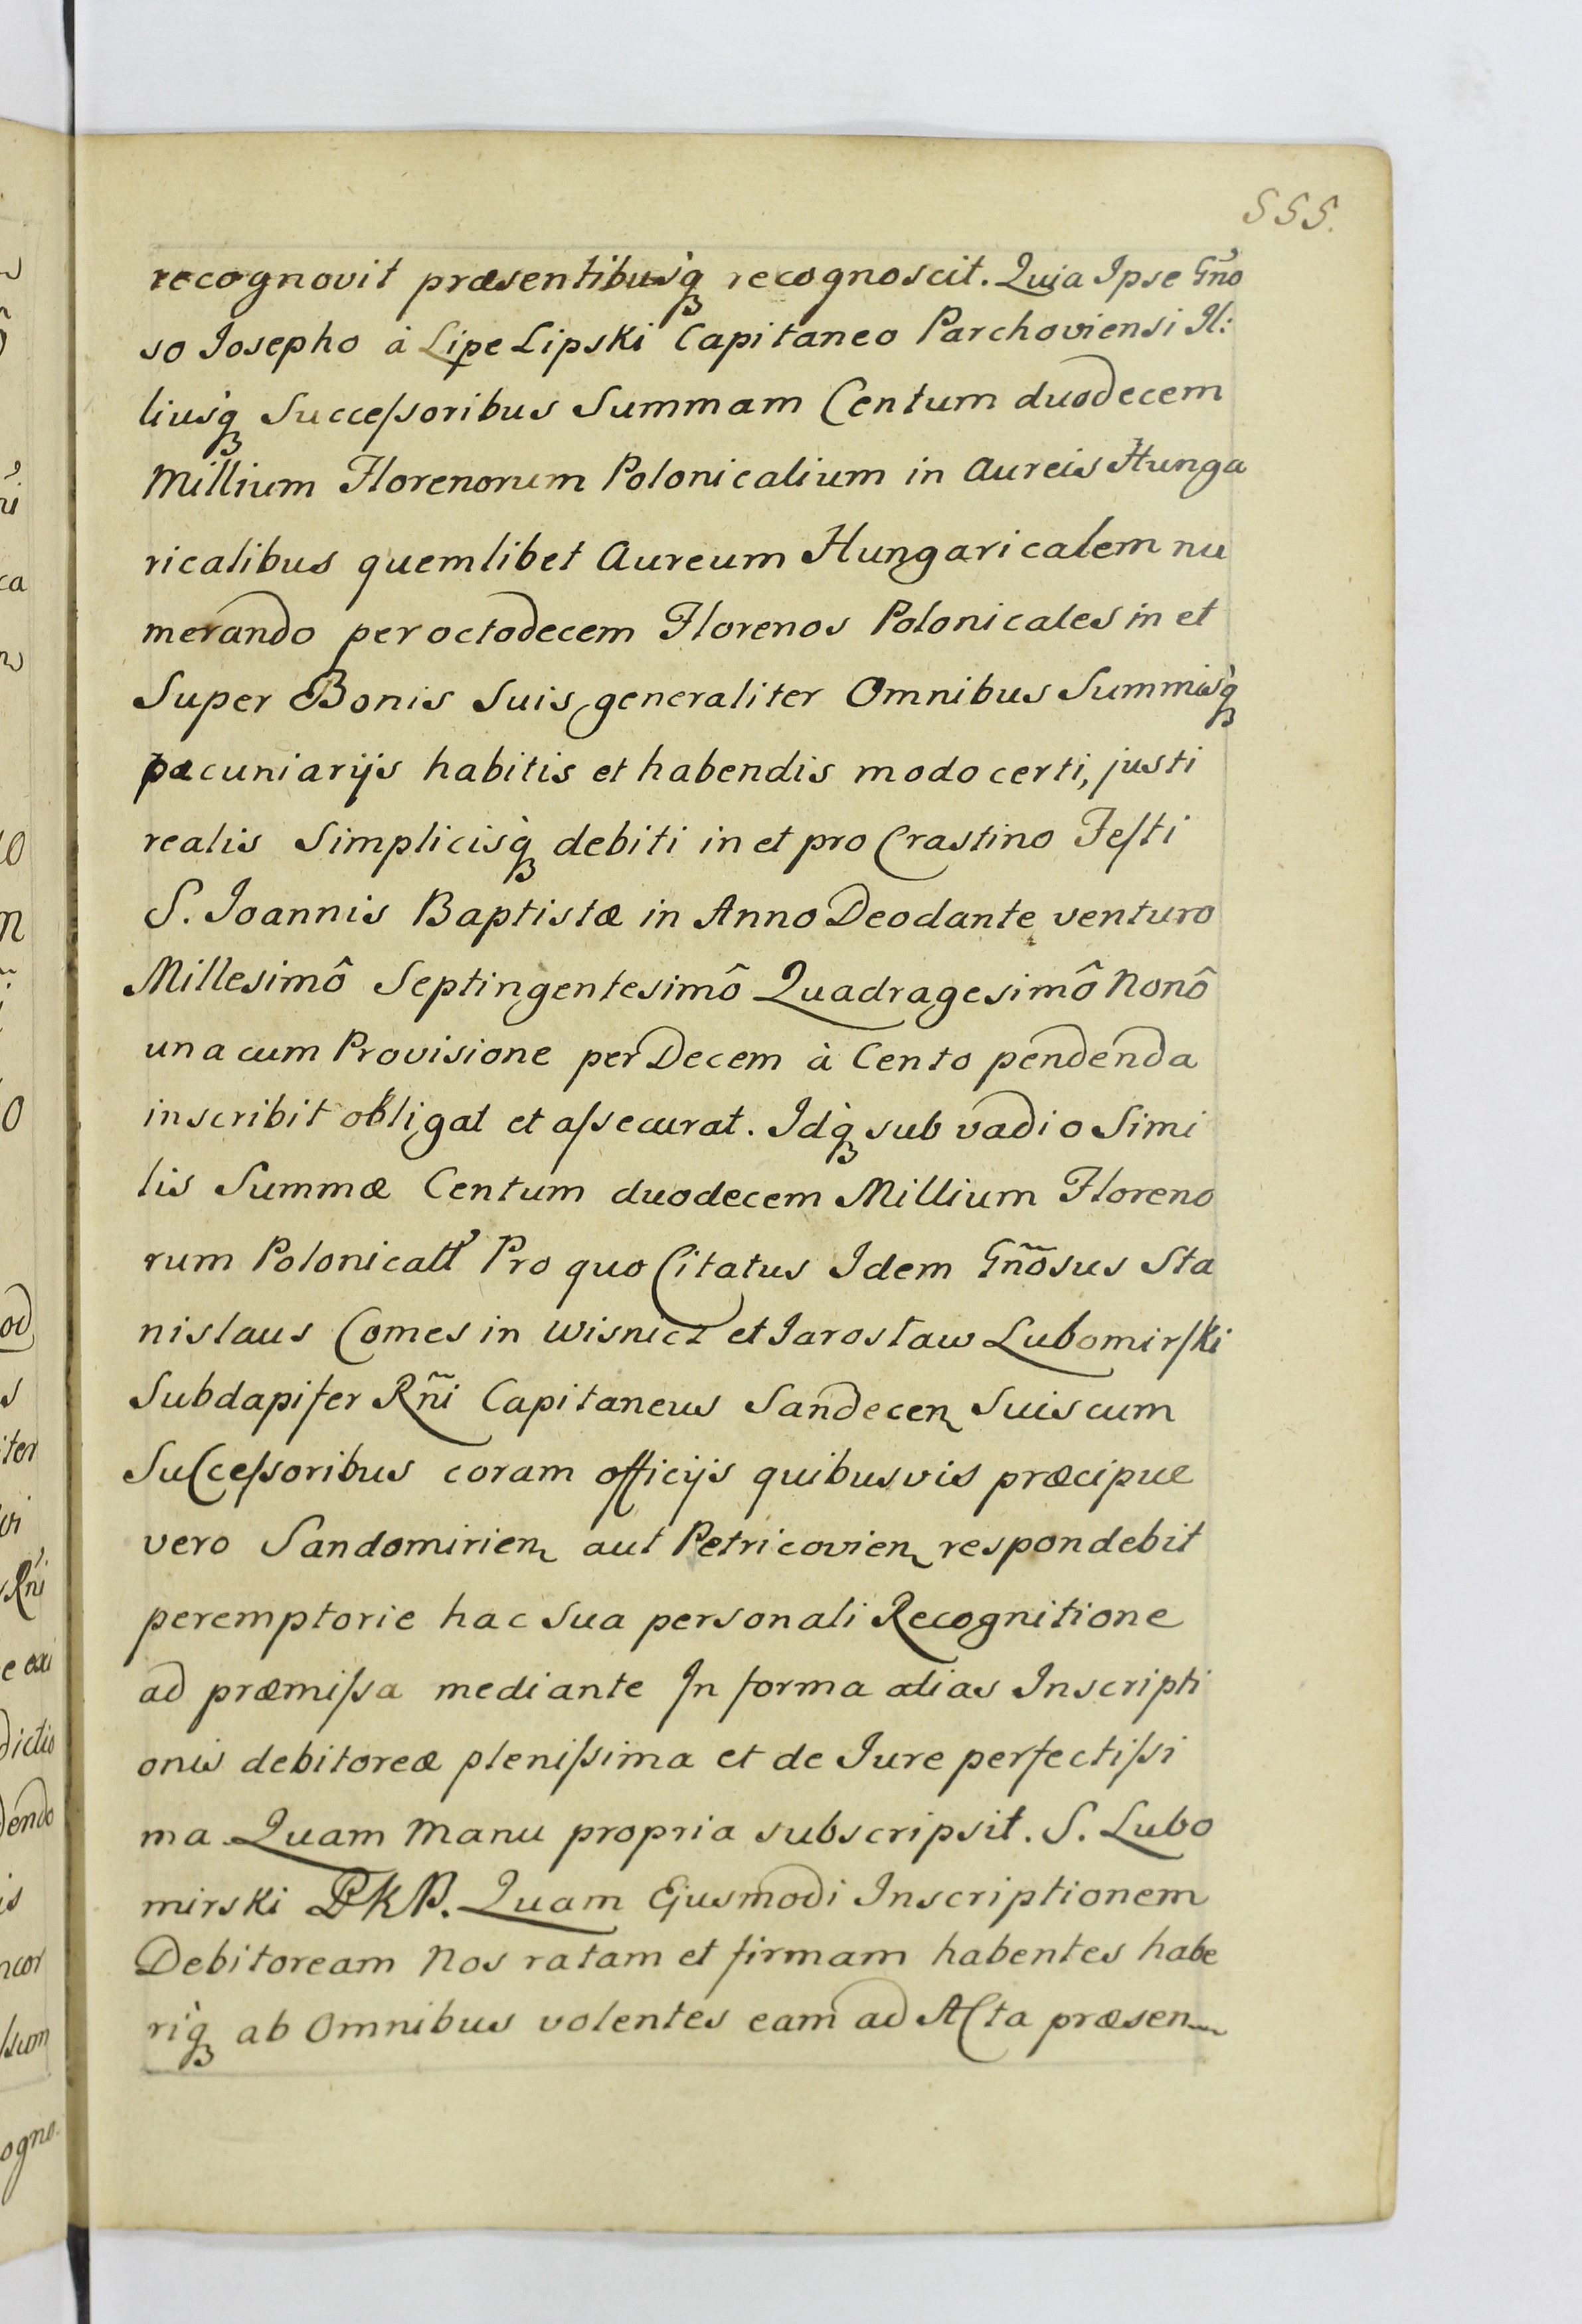 555.
recognovit præsentibusq́ꝫ recognoscit. Quia Ipse Gño
so Josepho à Lipe Lipski Capitaneo Parchoviensi Il:
liusq́ꝫ Succeſsoribus Summam Centum duodecem
Millium Florenorum Polonicalium in Aureis Hunga
ricalibus quemlibet Aureum Hungaricalem nu
merando per octodecem Florenos Polonicales in et
Super Bonis Suis generaliter Omnibus Summisq́ꝫ
pæcuniarijs habitis et habendis modo certi, justi
realis Simplicisq́ꝫ debiti in et pro Crastino Feſti
S. Joannis Baptistæ in Anno Deodante venturo
Millesimô Septingentesimô Quadragesimô Nonô
una cum Provisione per Decem à Cento pendenda
inscribit obligat et aſsecurat. Idq́ꝫ sub vadio Simi
lis Summæ Centum duodecem Millium Floreno
rum Polonicall' Pro quo Citatus Idem Gñosus Sta
nislaus Comes in Wisnicz et Jarosław Lubomirſki
Subdapifer Rñi Capitaneus Sandecen Suis cum
Succeſsoribus coram officijs quibusvis præcipue
vero Sandomirien aut Petricovien respondebit
peremptorie hac Sua personali Recognitione
ad præmiſsa mediante In forma alias Inscripti
onis debitoreæ pleniſsima et de Jure perfectiſsi
ma Quam Manu propria subscripsit. S. Lubo
mirski PKP. Quam Ejusmodi Inscriptionem
Debitoream Nos ratam et firmam habentes habe
riq́ꝫ ab Omnibus volentes eam ad Acta præsen